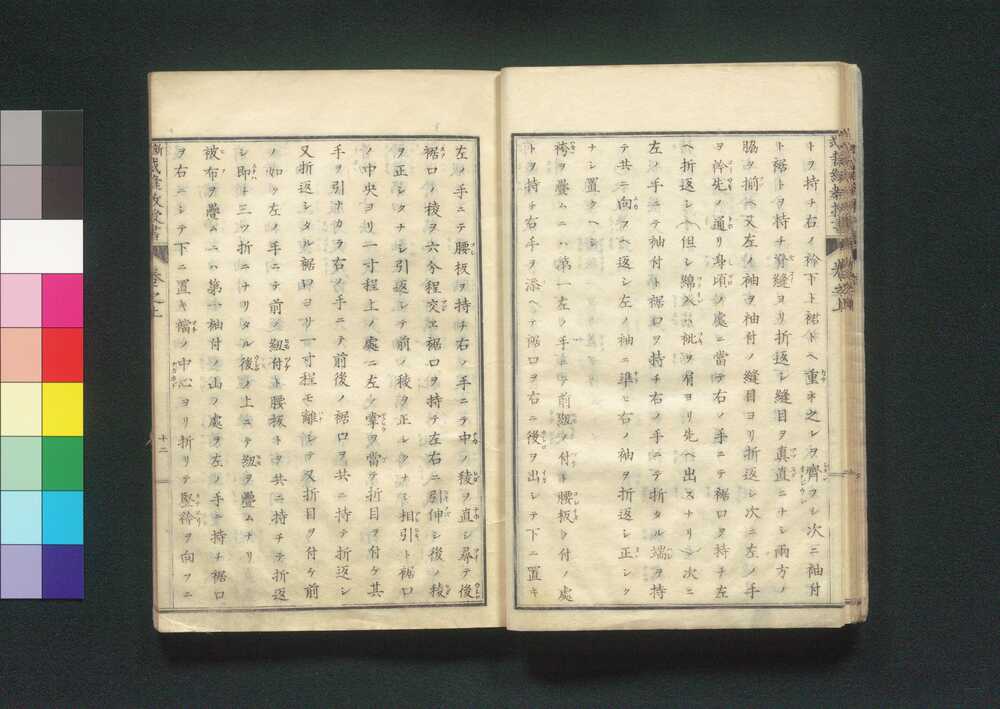 トヲ持チ右ノ衿下ト裙トヘ重ネ之レヲ齊フシ次ニ袖付
ト裾トヲ持チ脊縫ヨリ折返シ縫目ヲ真直ニナシ両方ノ
脇ヲ揃ヘ又左ノ袖ヲ袖付ノ縫目ヨリ折返シ次ニ左ノ手
ヲ衿先ノ通リ身頃ノ處ニ當テ右ノ手ニテ裾口ヲ持チ左
ヘ折返シ但シ綿入ハ袵ヲ肩ヨリ先ヘ出スナリ次ニ
左ノ手ニテ袖付ト裾口ヲ持チ右ノ手ニテ折タル端ヲ持
テ共ニ向フヘ返シ左ノ袖ニ準ヒ右ノ袖ヲ折返シ正シク
ナシ置クヘシ
袴ヲ疊ムニハ第一左ノ手ニテ前紐ノ付ト腰板ト付ノ處
トヲ持チ右手ヲ添ヘテ裾口ヲ右ニ後ヲ出シテ下ニ置キ
左ノ手ニテ腰板ヲ持チ右ノ手ニテ中ノ稜ヲ直シ尋テ後
裾口ノ稜ヲ六分程交エ裾口ヲ持チ左右ニ引伸シ後ノ稜
ヲ正シクナシ引返シテ前ノ稜ヲ正シクナシ相引ト裾口
ノ中央ヨリ一寸程上ノ處ニ左ノ掌ヲ當テ折目ヲ付ケ其
手ヲ引ナカラ右ノ手ニテ前後ノ裾口ヲ共ニ持テ折返シ
又折返シタル裾口ヨリ一寸程モ離シテ又折目ヲ付ケ前
ノ如ク左ノ手ニテ前ノ紐付ト腰板トヲ共ニ持チテ折返
シ即ト三ツ折ニナリタル後ノ上ニテ紐ヲ疊ムナリ
被布ヲ疊ムニハ第一袖付ノ山ノ處ヲ左ノ手ニ持チ裾口
ヲ右ニシテ下ニ置キ襠ノ中心ヨリ折リテ堅衿ヲ向フニ
裁縫教授書
卷之上
十二